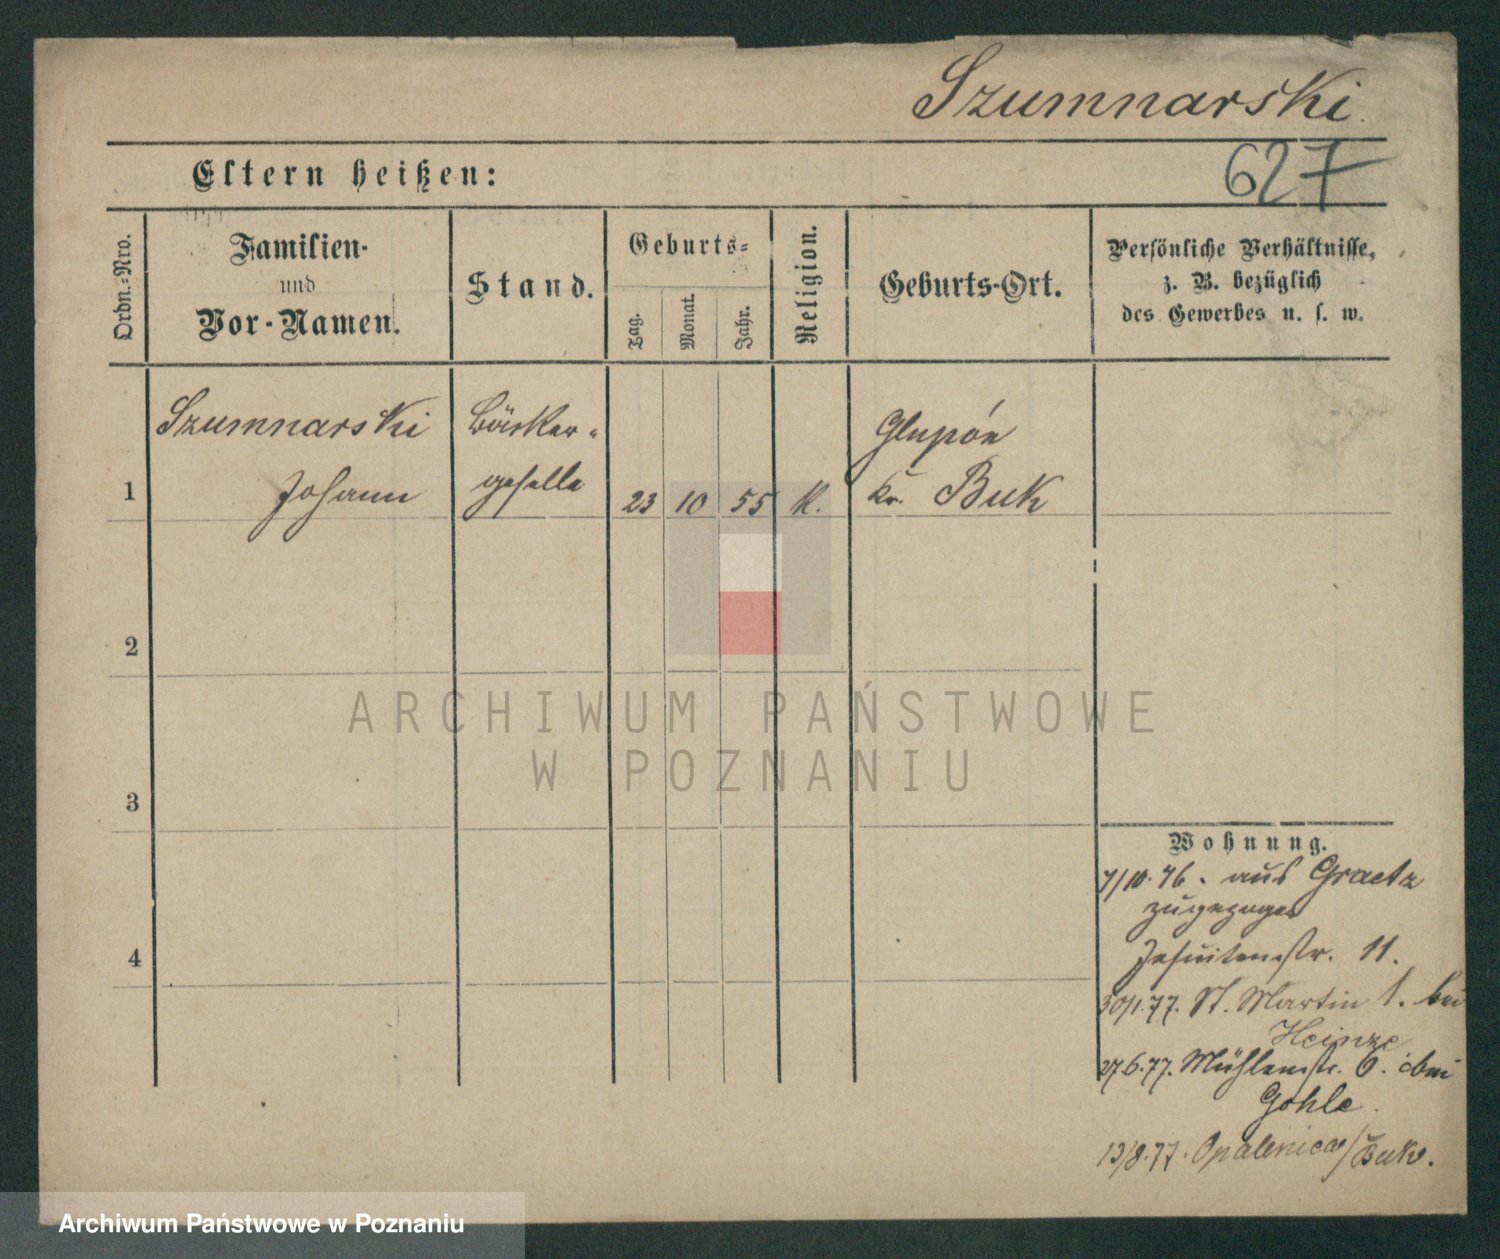 Szumnarski
Eltern heißen:
627
Ordn.-Nro.
Familien-
und
Vor-Namen.
Stand.
Geburts-
Tag.
Monat.
Jahr.
Religion.
Geburts-Ort.
Persönliche Verhältnisse,
z. B. bezüglich
des Gewerbes u. s. w.
1
Szumnarski
Johann
Bäcker-
geselle
23
10
55
K.
Glupón
Kr. Buk
2
3
4
Wohnung.
7/10.76. aus Graetz
zugezogen
Jesuitenstr. 11.
30/1.77. St. Martin 1. bei
Heinze
27.6.77. Mühlenstr. 6. bei
Gohle.
13/8.77. Opalenica/Buk.
ARCHIWUM PAŃSTWOWE
W POZNANIU
Archiwum Państwowe w Poznaniu